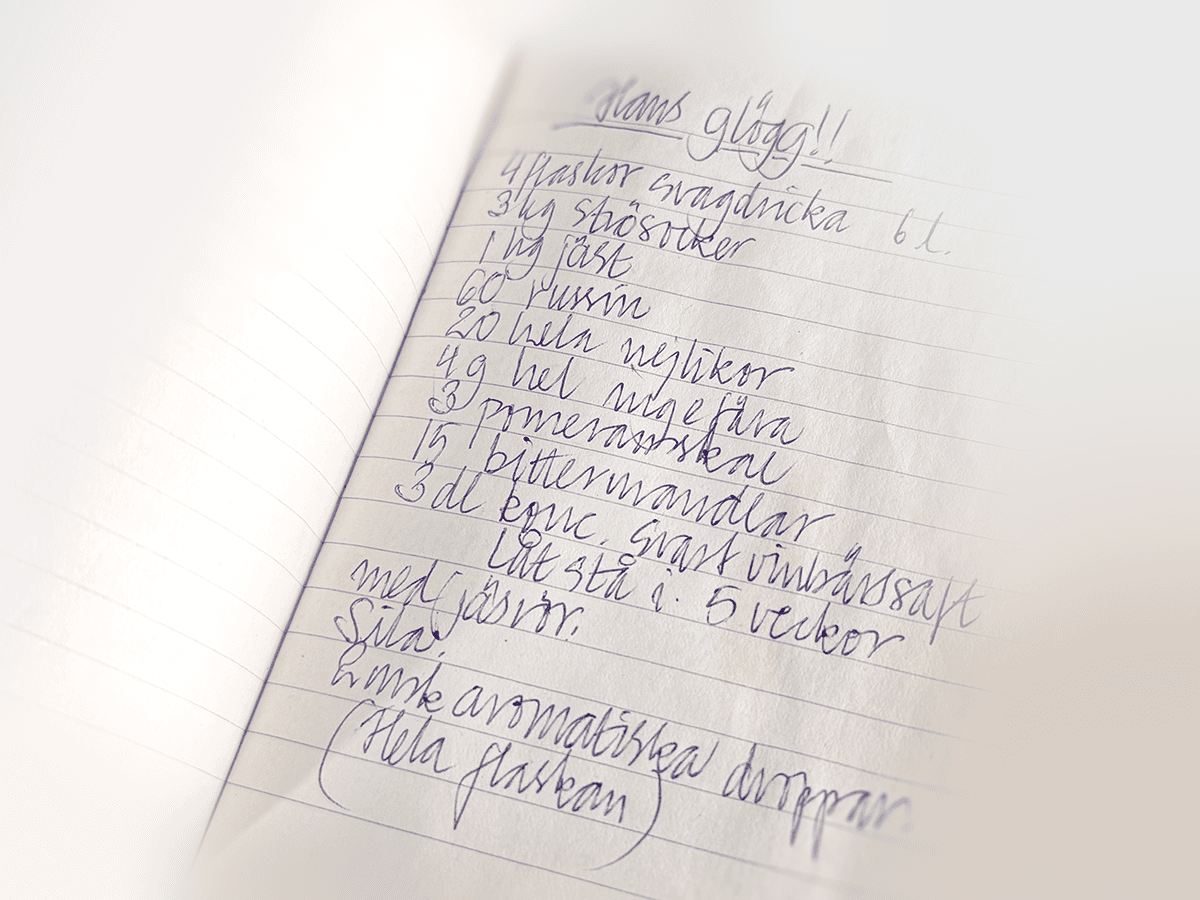 Hans glögg!!
4 flaskor svagdricka 6 l.
3 kg strösocker
1 hg jäst
60 russin
20 hela nejlikor
4 g hel ingefära
3 pomeransskal
15 bittermandlar
3 dl konc. svart vinbärssaft
Låt stå i 5 veckor
med jäsrör.
Sila.
2 msk aromatiska droppar.
(Hela flaskan)